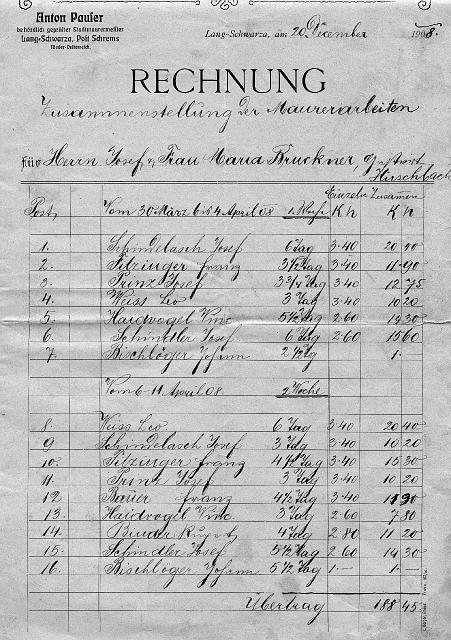 Anton Pauser
behördlich geprüfter Stadtmaurermeister
Lang-Schwarza, Post Schrems
Nieder-Oesterreich.
Lang-Schwarza, am 20 Dezember 1908.
RECHNUNG
Zusammenstellung der Maurerarbeiten
für Herrn Josef u. Frau Maria Bruckner,
Hirschbach
Einzeln Zusamen
Post Vom 30 März bis 4 April 08 1. Woche K h K h
1. Schindelasch Josef 6 Tag 3·40 20 40
2. Pilzinger Franz 3 1/2 Tag 3·40 11·90
3. Prinz Josef 3 3/4 Tag 3·40 12 75
4. Weiss Leo 3 Tag 3·40 10 20
5. Haidvogel Vinc 5 1/2 Tag 2·60 14 30
6. Schindler Josef 6 Tag 2·60 15 60
7. Bischlöger Johann 2 1/2 Tg 1·—
Vom 6–11 April 08 2 Woche
8. Weiss Leo 6 Tag 3·40 20 40
9 Schindelasch Josef 3 Tag 3·40 10 20
10. Pilzinger Franz 4 1/2 Tag 3·40 15 30
11. Prinz Josef 3 Tag 3·40 10 20
12 Bauer Franz 4 1/2 Tag 3·40
13. Haidvogel Vinc. 3 Tag 2·60 7 80
14. Binder Rupert 4 Tag 2·80 11 20
15. Schindler Josef 5 1/2 Tag 2·60 14 30
16. Bischlöger Johann 5 1/2 Tag 1·— 1·—
Übertrag 188 45